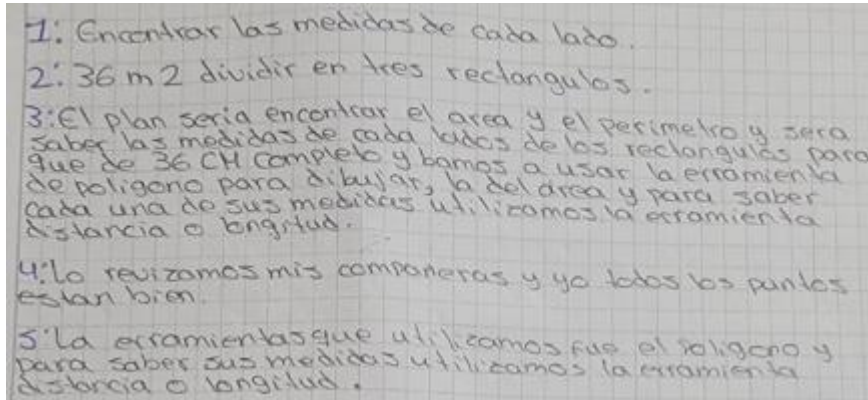 1: Encontrar las medidas de cada lado.
2: 36 m 2 dividir en tres rectangulos.
3: El plan seria encontrar el area y el perimetro y sera
saber las medidas de cada lados de los rectangulos para
que de 36 CM completo y bamos a usar la erramienda
de poligono para dibujar, la del area y para saber
cada una de sus medidas utilizamos la erramienta
distancia o longitud.
4: lo revizamos mis compañeras y yo todos los puntos
estan bien.
5: La erramientas que utilizamos fue el poligono y
para saber sus medidas utilizamos la erramienta
distancia o longitud.